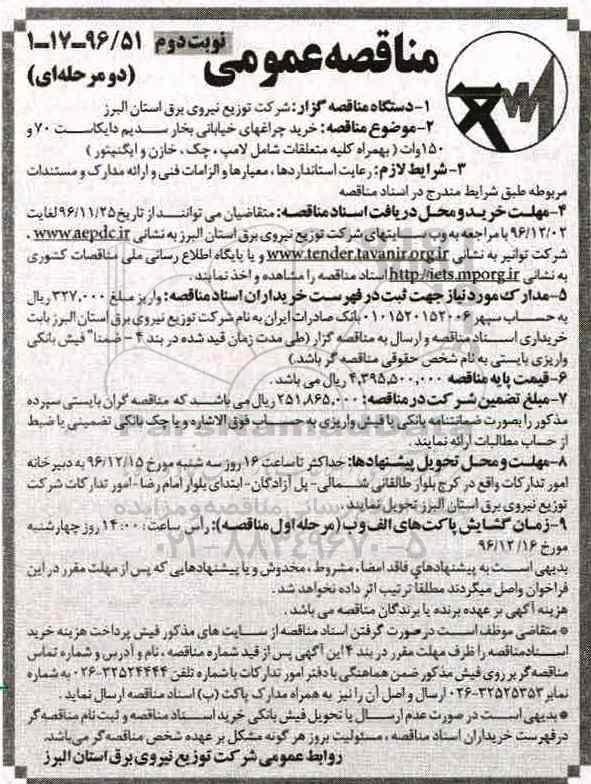 مناقصه عمومی نوبت دوم ۱-۱۷-۹۶/۵۱
(دو مرحله‌ای)
۱-دستگاه مناقصه گزار: شرکت توزیع نیروی برق استان البرز
۲-موضوع مناقصه: خرید چراغهای خیابانی بخار سدیم دایکاست ۷۰ و
۱۵۰ وات ( بهمراه کلیه متعلقات شامل لامپ ، چک ، خازن و ایگنیتور )
۳-شرایط لازم: رعایت استانداردها ، معیارها و الزامات فنی و ارائه مدارک و مستندات
مربوطه طبق شرایط مندرج در اسناد مناقصه
۴-مهلت خرید و محل دریافت اسناد مناقصه: متقاضیان می توانند از تاریخ ۹۶/۱۱/۲۵ لغایت
۹۶/۱۲/۰۲ با مراجعه به وب سایتهای شرکت توزیع نیروی برق استان البرز به نشانی www.aepdc.ir ،
شرکت توانیر به نشانی www.tender.tavanir.org.ir و یا پایگاه اطلاع رسانی ملی مناقصات کشوری
به نشانی http://iets.mporg.ir اسناد مناقصه را مشاهده و اخذ نمایند .
۵-مدارک مورد نیاز جهت ثبت در فهرست خریداران اسناد مناقصه: واریز مبلغ ۳۲۷,۰۰۰ ریال
به حساب سپهر ۰۱۰۱۵۲۰۱۵۲۰۰۶ بانک صادرات ایران به نام شرکت توزیع نیروی برق استان البرز بابت
خریداری اسناد مناقصه و ارسال به مناقصه گزار (طی مدت زمان قید شده در بند ۴ - ضمنا" فیش بانکی
واریزی بایستی به نام شخص حقوقی مناقصه گر باشد.)
۶-قیمت پایه مناقصه ۴,۳۹۵,۵۰۰,۰۰۰ ریال می باشد .
۷-مبلغ تضمین شرکت در مناقصه: ۲۵۱,۸۶۵,۰۰۰ ریال می باشد که مناقصه گران بایستی سپرده
مذکور را بصورت ضمانتنامه بانکی یا فیش واریزی به حساب فوق الاشاره و یا چک بانکی تضمینی یا ضبط
از حساب مطالبات ارائه نمایند .
۸-مهلت و محل تحویل پیشنهادها: حداکثر تا ساعت ۱۶ روز سه شنبه مورخ ۹۶/۱۲/۱۵ به دبیرخانه
امور تدارکات واقع در کرج بلوار طالقانی شمالی- پل آزادگان- ابتدای بلوار امام رضا- امور تدارکات شرکت
توزیع نیروی برق استان البرز تحویل نمایند.
۹-زمان گشایش پاکت های الف و ب (مرحله اول مناقصه): رأس ساعت : ۱۴:۰۰ روز چهارشنبه
مورخ ۹۶/۱۲/۱۶
بدیهی است به پیشنهادهای فاقد امضا ، مشروط ، مخدوش و یا پیشنهادهایی که پس از مهلت مقرر در این
فراخوان واصل میگردند مطلقاً ترتیب اثر داده نخواهد شد .
هزینه آگهی بر عهده برنده یا برندگان مناقصه می باشد .
* متقاضی موظف است در صورت گرفتن اسناد مناقصه از سایت های مذکور فیش پرداخت هزینه خرید
اسناد مناقصه را ظرف مهلت مقرر در بند ۴ این آگهی پس از قید شماره مناقصه ، نام و آدرس و شماره تماس
مناقصه گر بر روی فیش مذکور ضمن هماهنگی با دفتر امور تدارکات با شماره تلفن ۳۲۵۲۴۴۴۴-۰۲۶ به شماره
نمابر ۳۲۵۲۵۳۵۳-۰۲۶ ارسال و اصل آن را نیز به همراه مدارک پاکت (ب) اسناد مناقصه ارسال نماید .
* بدیهی است در صورت عدم ارسال یا تحویل فیش بانکی خرید اسناد مناقصه و ثبت نام مناقصه گر
در فهرست خریداران اسناد مناقصه ، مسئولیت بروز هر گونه مشکل بر عهده شخص مناقصه گر می‌باشد.
روابط عمومی شرکت توزیع نیروی برق استان البرز
۰۲۱-۸۸۳۴۹۶۷۰-۵